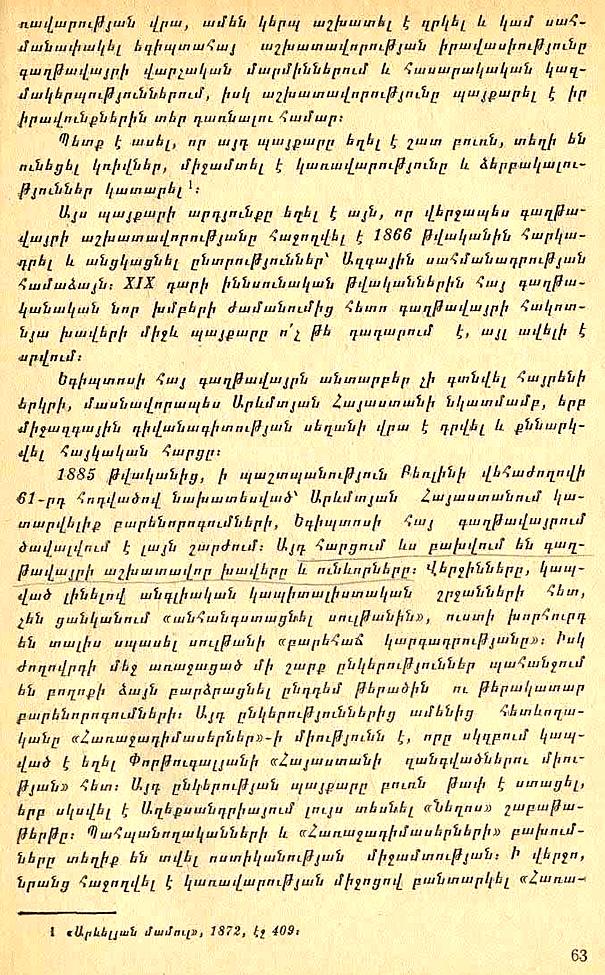 ռավարության վրա, ամեն կերպ աշխատել է զրկել և կամ սահ-
մանափակել եգիպտահայ աշխատավորության իրավասիությունը
գաղթավայրի վարչական մարմիններում և հասարակական կազ-
մակերպություններում, իսկ աշխատավորությունը պայքարել է իր
իրավունքներին տեր դառնալու համար։
Պետք է ասել, որ այդ պայքարը եղել է շատ բուռն, տեղի են
ունեցել կռիվներ, միջամտել է կառավարությունը և ձերբակալու-
թյուններ կատարել ¹։
Այս պայքարի արդյունքը եղել է այն, որ վերջապես գաղթա-
վայրի աշխատավորությանը հաջողվել է 1866 թվականին հարկա-
դրել և անցկացնել ընտրություններ՝ Ազգային սահմանադրության
համաձայն։ XIX դարի իննսունական թվականներին հայ գաղթա-
կանական նոր խմբերի ժամանումից հետո գաղթավայրի հակոտ-
նյա խավերի միջև պայքարը ո՛չ թե դադարում է, այլ ավելի է
սրվում։
Եգիպտոսի հայ գաղթավայրն անտարբեր չի գտնվել հայրենի
երկրի, մասնավորապես Արևմտյան Հայաստանի նկատմամբ, երբ
միջազգային դիվանագիտության սեղանի վրա է դրվել և քննարկ-
վել հայկական հարցը։
1885 թվականից, ի պաշտպանություն Բեռլինի վեհաժողովի
61-րդ հոդվածով նախատեսված՝ Արևմտյան Հայաստանում կա-
տարվելիք բարենորոգումների, Եգիպտոսի հայ գաղթավայրում
ծավալվում է լայն շարժում։ Այդ հարցում ևս բախվում են գաղ-
թավայրի աշխատավոր խավերը և ունևորները։ Վերջինները, կապ-
ված լինելով անգլիական կապիտալիստական շրջանների հետ,
չեն ցանկանում «անհանգստացնել սուլթանին», ուստի խորհուրդ
են տալիս սպասել սուլթանի «բարեհաճ կարգադրությանը»։ Իսկ
ժողովրդի մեջ առաջացած մի շարք ընկերություններ պահանջում
են բողոքի ձայն բարձրացնել ընդդեմ թերածին ու թերակատար
բարենորոգումների։ Այդ ընկերություններից ամենից հետևողա-
կանը «Հառաջադիմասերներ»-ի միությունն է, որը սկզբում կապ-
ված է եղել Փորթուգալյանի «Հայաստանի զանգվածներու միու-
թյան» հետ։ Այդ ընկերության պայքարը բուռն թափ է ստացել,
երբ սկսվել է Աղեքսանդրիայում լույս տեսնել «Նեղոս» շաբաթա-
թերթը։ Պահպանողականների և «Հառաջադիմասերների» բախում-
ները տեղիք են տվել ոստիկանության միջամտության։ Ի վերջո,
նրանց հաջողվել է կառավարության միջոցով բանտարկել «Հառա-
1 «Արևելյան մամուլ», 1872, էջ 409։
63